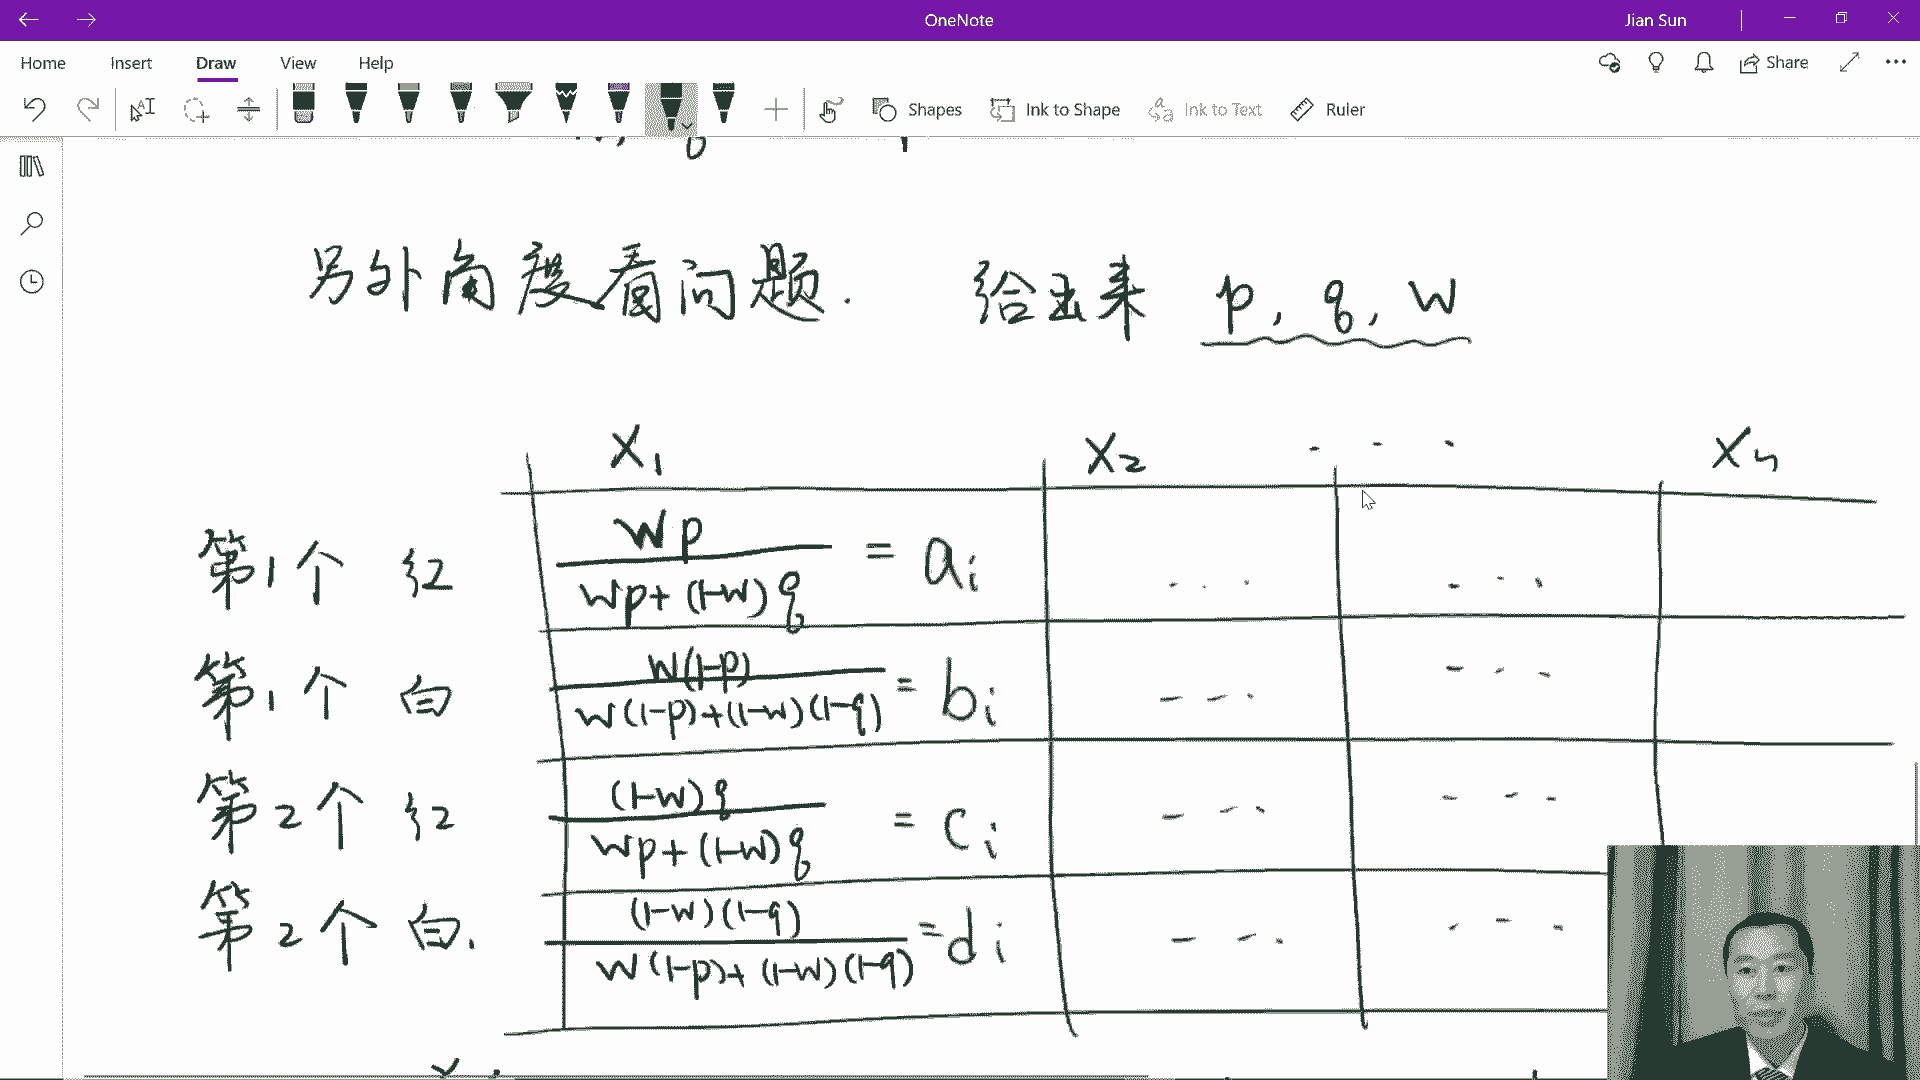 OneNote
Jian Sun
Home Insert Draw View Help
Share
Shapes Ink to Shape Ink to Text Ruler
另外角度看问题. 给出来 p, q, w
x₁ x₂ ··· xₙ
第1个 红 wp / (wp+(1-w)q) = aᵢ ··· ···
第1个 白 w(1-p) / (w(1-p)+(1-w)(1-q)) = bᵢ ··· ···
第2个 红 (1-w)q / (wp+(1-w)q) = cᵢ ··· ···
第2个 白. (1-w)(1-q) / (w(1-p)+(1-w)(1-q)) = dᵢ ··· ···